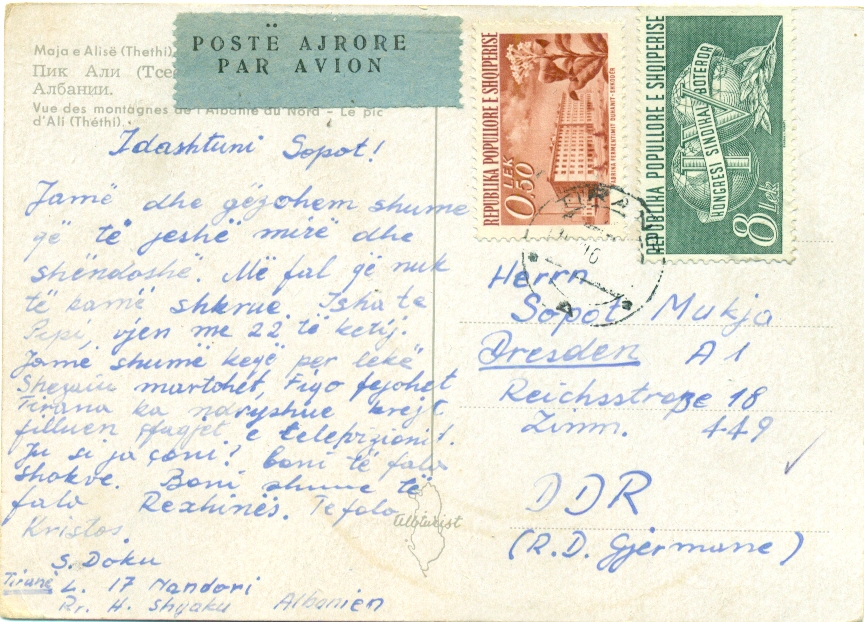 Maja e Alisë (Thethi)
Пик Али (Тсе
Албании.
Vue des montagnes de l'Albanie du Nord – Le pic
d'Ali (Théthi).
POSTË AJRORE
PAR AVION
REPUBLIKA POPULLORE E SHQIPERISE
0,50 LEK
FABRIKA FERMENTIMIT DUHANIT-SHKODËR
REPUBLIKA POPULLORE E SHQIPERISE
KONGRESI SINDIKAL BOTEROR
IV
8 Lek
Idashtuni Sopot!
Jamë dhe gëzohem shume
që të jeshë mirë dhe
shëndoshë. Më fal që nuk
të kamë shkrue. Isha te
Pepi, vjen me 22 të ketij.
Jamë shumë keqë per lekë
martohet, Figo fejohet
Tirana ka ndryshue krejt
filluen e telepizionit.
Ju si ja çoni? Boni të fala
shokve. Boni shume të
fala Rexhinës. Te fala
Kristos.
S. Doku
Tiranë L. 17 Nandori
Rr. H. Shyaku Albanien
Albturist
Herrn
Sopot Mukja
Dresden A1
Reichsstraße 18
Zimm. 449
DDR
(R.D. Gjermane)